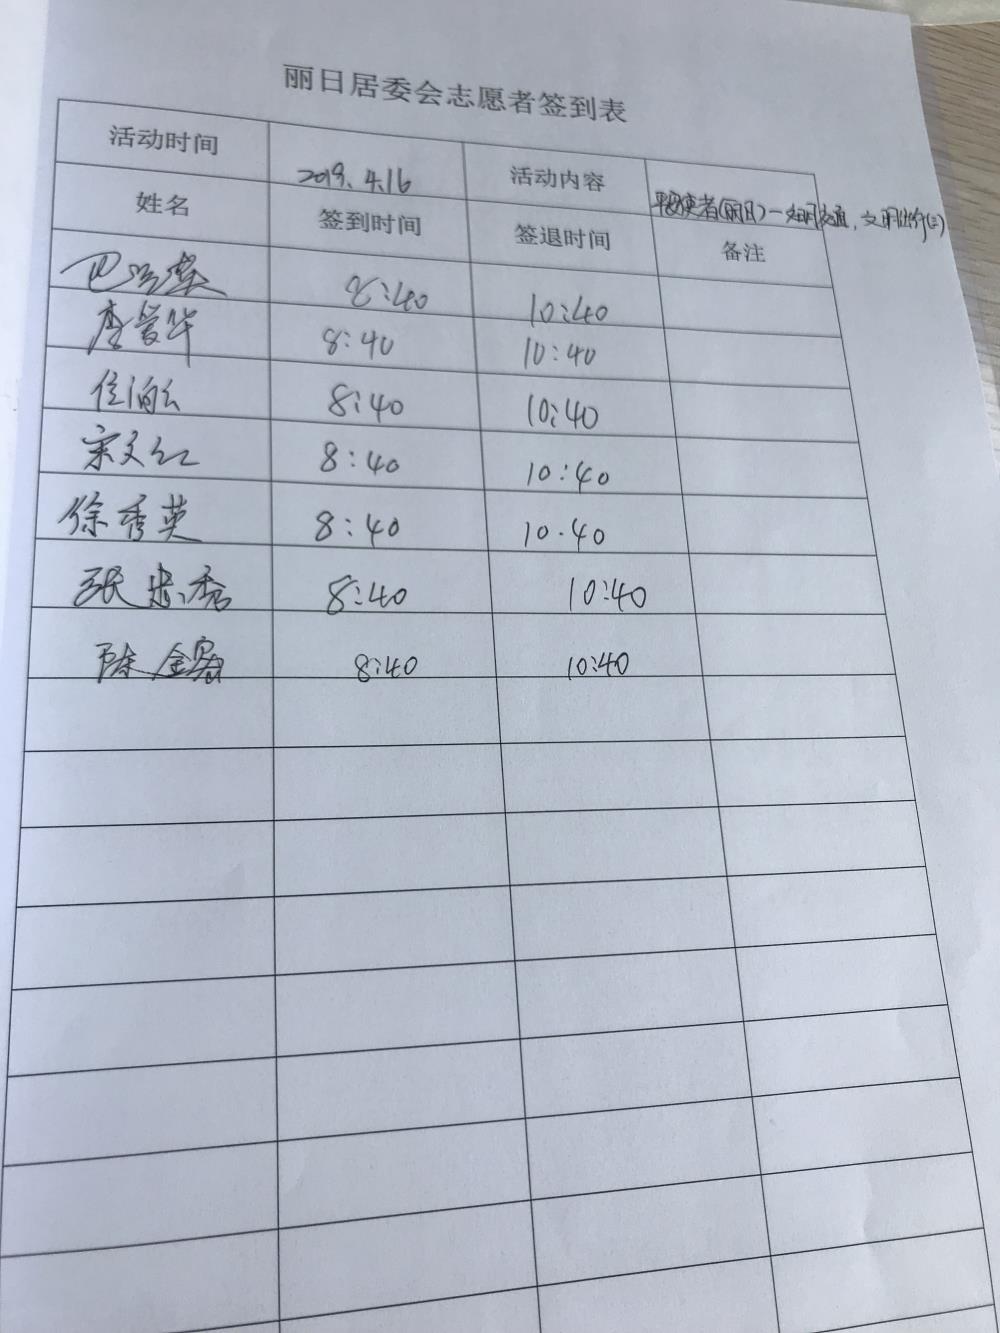 丽日居委会志愿者签到表
活动时间 2019.4.16 活动内容 平安使者(丽日)一文明交通,文明出行(二)
姓名 签到时间 签退时间 备注
8:40 10:40
唐爱华 8:40 10:40
8:40 10:40
宋文红 8:40 10:40
徐秀英 8:40 10.40
张忠秀 8:40 10:40
陈金 8:40 10:40